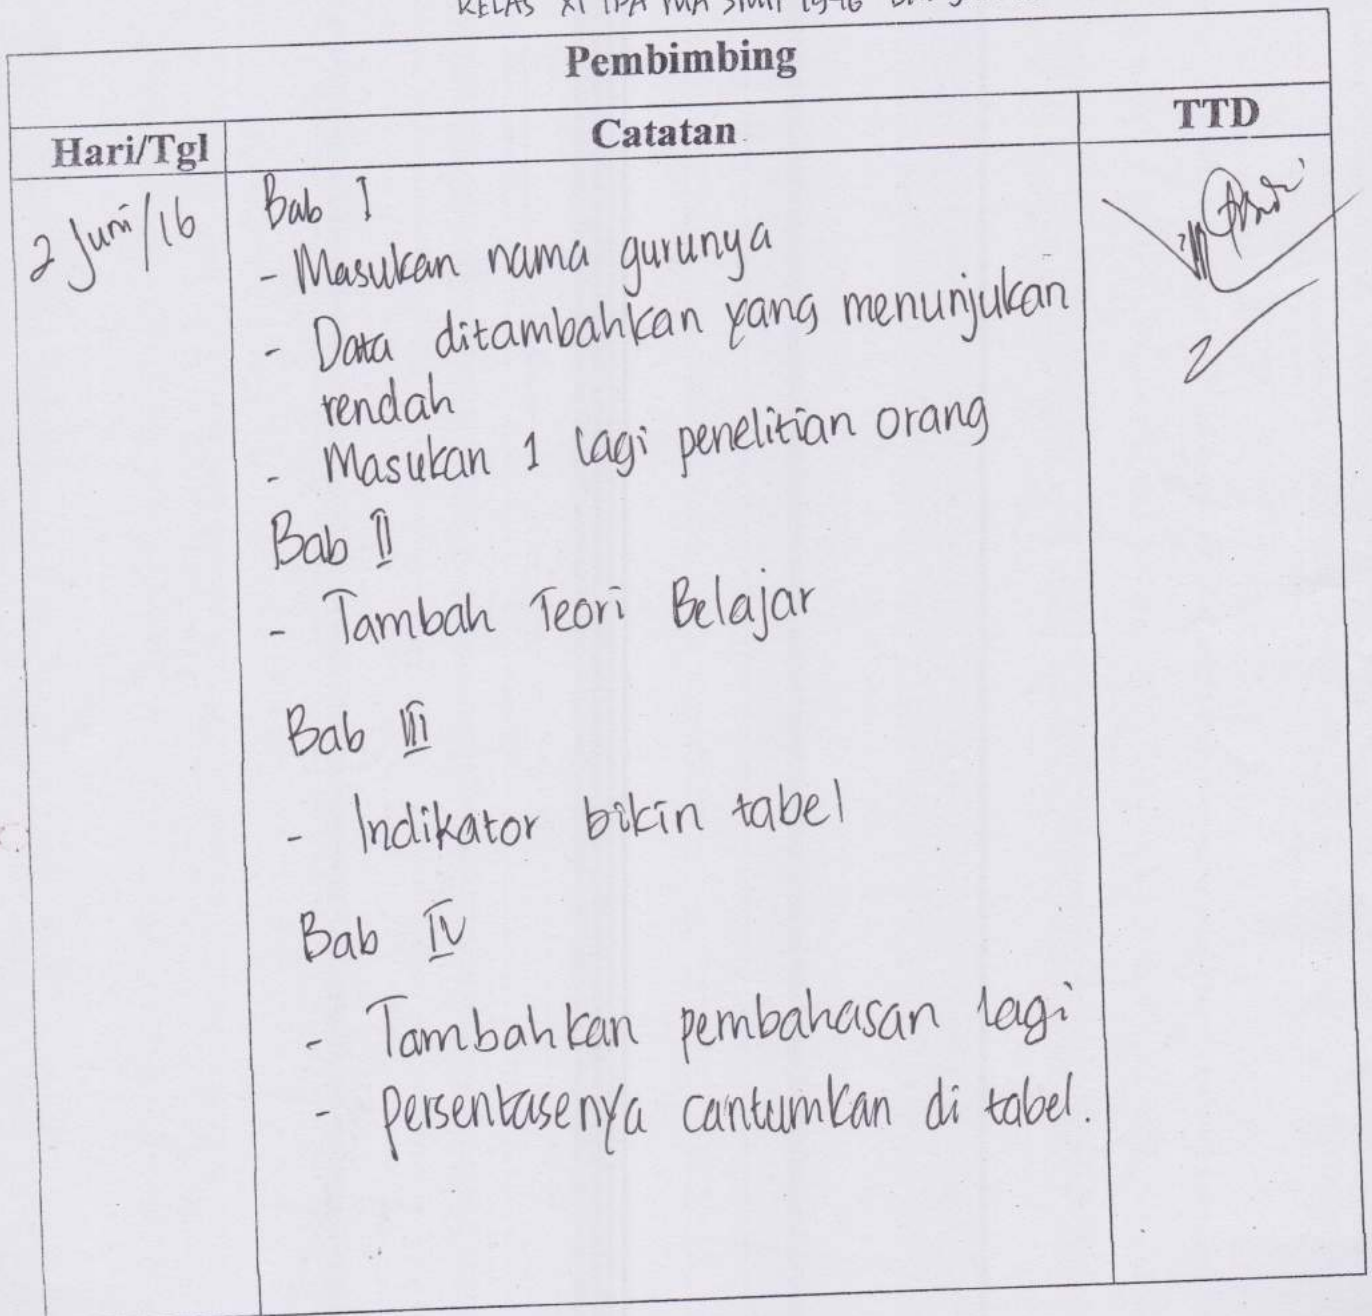 KELAS XI IPA MA
Pembimbing
Hari/Tgl Catatan TTD
2 Juni/16
Bab I
- Masukan nama gurunya
- Data ditambahkan yang menunjukan
rendah
- Masukan 1 lagi penelitian orang
Bab II
- Tambah Teori Belajar
Bab III
- Indikator bikin tabel
Bab IV
- Tambahkan pembahasan lagi
- persentasenya cantumkan di tabel.